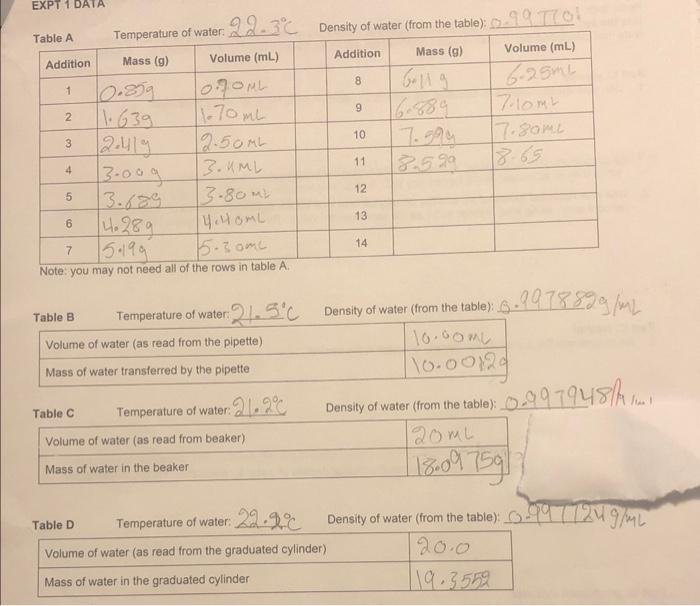 EXPT 1 DATA
Table A Temperature of water: 22.3°C Density of water (from the table): 0.99770
Addition Mass (g) Volume (mL) Addition Mass (g) Volume (mL)
1 0.85g 0.90mL 8 6.11g 6.25mL
2 1.63g 1.70mL 9 6.88g 7.10mL
3 2.41g 2.50mL 10 7.59g 7.80mL
4 3.00g mL 11 8.52g 8.65
5 3.68g 3.80mL 12
6 4.28g 4.40mL 13
7 5.19g 5.30mL 14
Note: you may not need all of the rows in table A.
Table B Temperature of water: 21.5°C Density of water (from the table): 0.997882g/mL
Volume of water (as read from the pipette) 10.00mL
Mass of water transferred by the pipette
Table C Temperature of water: 21.2°C Density of water (from the table): 0.997948
Volume of water (as read from beaker) 20mL
Mass of water in the beaker 18.0975g
Table D Temperature of water: Density of water (from the table): 0.997724g/mL
Volume of water (as read from the graduated cylinder) 20.0
Mass of water in the graduated cylinder